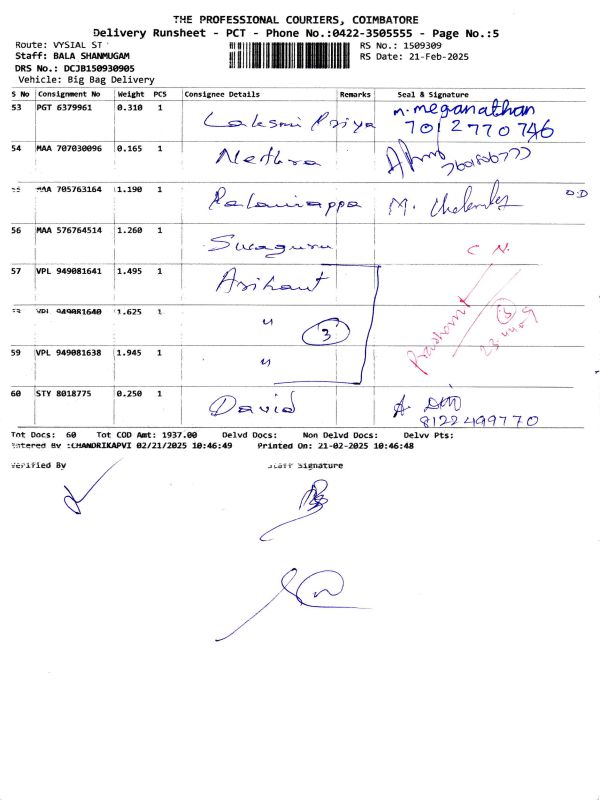 THE PROFESSIONAL COURIERS, COIMBATORE
Delivery Runsheet - PCT - Phone No.:0422-3505555 - Page No.:5
Route: VYSIAL ST
RS No.: 1509309
Staff: BALA SHANMUGAM
RS Date: 21-Feb-2025
DRS No.: DCJB150930905
Vehicle: Big Bag Delivery
S No Consignment No Weight PCS Consignee Details Remarks Seal & Signature
53 PGT 6379961 0.310 1 Laksmi Priya n. meganathan
7012770746
54 MAA 707030096 0.165 1 Nethra
55 MAA 705763164 1.190 1 Palaniappa M. O.D
56 MAA 576764514 1.260 1 Sivaguru
C N.
57 VPL 949081641 1.495 1 Arihant
58 VPL 949081640 1.625 1 " 3
59 VPL 949081638 1.945 1 "
60 STY 8018775 0.250 1 David
8122499770
Tot Docs: 60 Tot COD Amt: 1937.00 Delvd Docs: Non Delvd Docs: Delvv Pts:
Entered By :CHANDRIKAPVI 02/21/2025 10:46:49 Printed On: 21-02-2025 10:46:48
Verified By Staff Signature